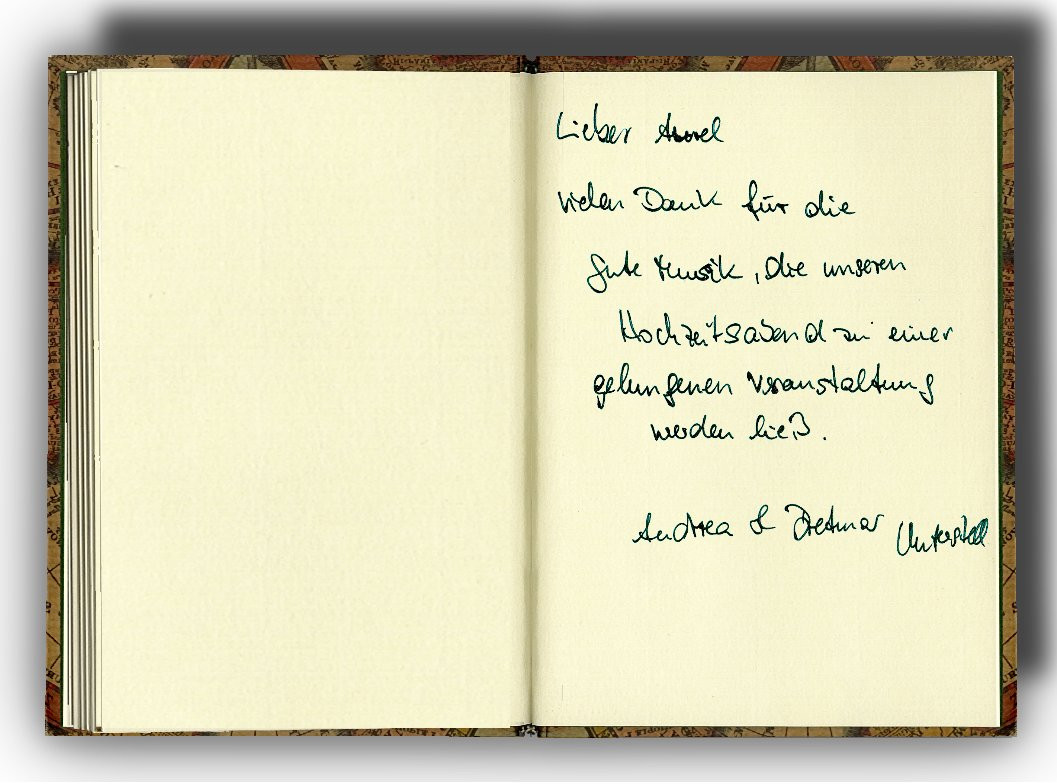 Lieber Aurel
vielen Dank für die
gute Musik, die unseren
Hochzeitsabend zu einer
gelungenen Veranstaltung
werden ließ.
Andrea & Dietmar Unterstall